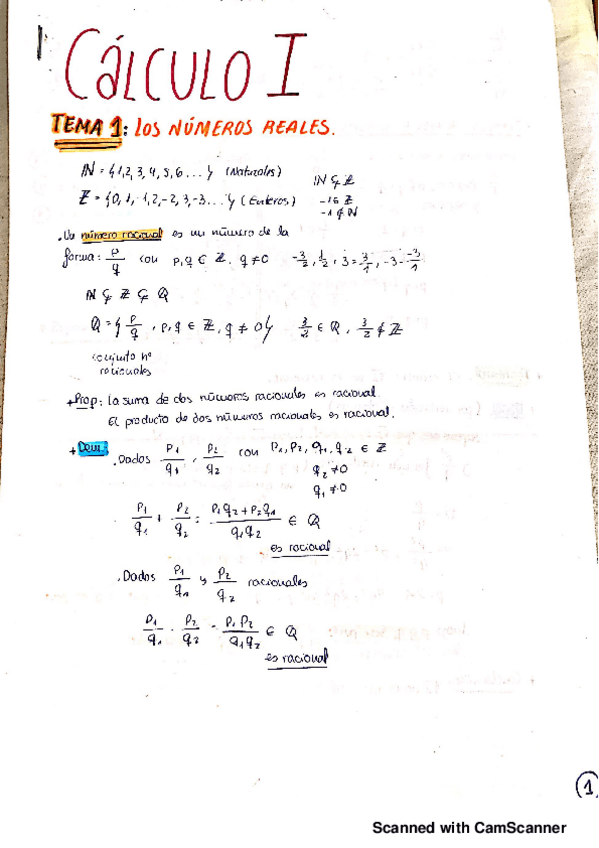 CÁLCULO I
TEMA 1: LOS NÚMEROS REALES.
ℕ = {1, 2, 3, 4, 5, 6 ... } (Naturales)
ℕ ⊊ ℤ
ℤ = {0, 1, -1, 2, -2, 3, -3 ... } (Enteros)
-1 ∈ ℤ
-1 ∉ ℕ
. Un número racional es un número de la
forma: p/q con p, q ∈ ℤ, q ≠ 0 -3/2, 1/2, 3 = 3/1, -3 = -3/1
ℕ ⊊ ℤ ⊊ ℚ
ℚ = { p/q , p, q ∈ ℤ, q ≠ 0 } 3/2 ∈ ℚ, 3/2 ∉ ℤ
conjunto nº
racionales
+ Prop: la suma de dos números racionales es racional.
El producto de dos números racionales es racional.
+ Dem:
. Dados p1/q1, p2/q2 con p1, p2, q1, q2 ∈ ℤ
q2 ≠ 0
q1 ≠ 0
p1/q1 + p2/q2 = p1q2 + p2q1 / q1q2 ∈ ℚ
es racional
. Dados p1/q1 y p2/q2 racionales
p1/q1 · p2/q2 = p1p2/q1q2 ∈ ℚ
es racional
1
Scanned with CamScanner